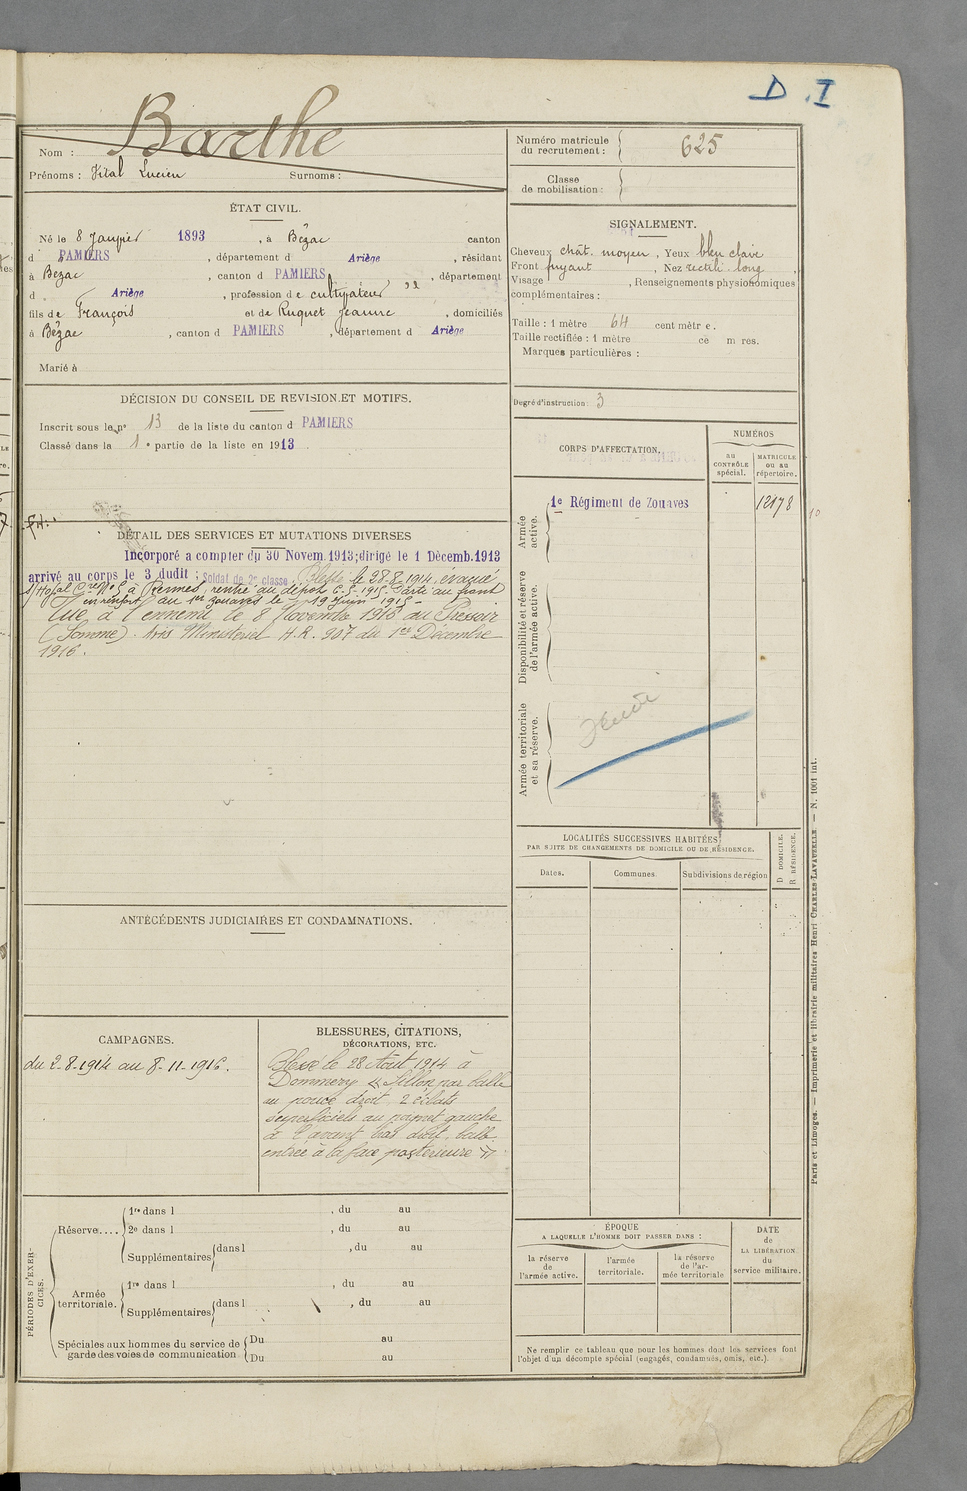 D.I
Barthe
Nom :
Prénoms : Vital Lucien Surnoms :
Numéro matricule
du recrutement : 625
Classe
de mobilisation :
ÉTAT CIVIL.
Né le 8 Janvier 1893 , à Bézac canton
d PAMIERS , département d Ariège , résidant
à Bézac , canton d PAMIERS , département
d Ariège , profession de cultivateur
fils de François et de Ruquet Jeanne , domiciliés
à Bézac , canton d PAMIERS , département d Ariège
Marié à
SIGNALEMENT.
Cheveux chât. moyen , Yeux bleu clair
Front fuyant , Nez rectil. long ,
Visage , Renseignements physionomiques
complémentaires :
Taille : 1 mètre 64 centimètre.
Taille rectifiée : 1 mètre ce m res.
Marques particulières :
Degré d'instruction : 3
DÉCISION DU CONSEIL DE REVISION ET MOTIFS.
Inscrit sous le nº 13 de la liste du canton d PAMIERS
Classé dans la 1e partie de la liste en 1913
CORPS D'AFFECTATION.
NUMÉROS
au
CONTRÔLE
spécial.
MATRICULE
ou au
répertoire.
Armée
active.
1e Régiment de Zouaves 12178
Disponibilité et réserve
de l'armée active.
Armée territoriale
et sa réserve.
DÉTAIL DES SERVICES ET MUTATIONS DIVERSES
Incorporé a compter du 30 Novem. 1913; dirigé le 1 Décemb. 1913
arrivé au corps le 3 dudit ; Soldat de 2e classe. Blessé le 28-8-1914, évacué
s/ Hôpal Cre No 5 à Rennes, rentré au dépôt 6-5-1915. Parti au front
en renfort au 1er zouaves le 19 Juin 1915 -
Tué à l'ennemi le 8 Novembre 1916 au Pressoir
(Somme). Avis Ministériel H.R. 907 du 1er Décembre
1916.
LOCALITÉS SUCCESSIVES HABITÉES
PAR SUITE DE CHANGEMENTS DE DOMICILE OU DE RÉSIDENCE.
Dates. Communes Subdivisions de région
D DOMICILE.
R RÉSIDENCE.
ANTÉCÉDENTS JUDICIAIRES ET CONDAMNATIONS.
CAMPAGNES.
du 2-8-1914 au 8-11-1916.
BLESSURES, CITATIONS,
DÉCORATIONS, ETC.
Blessé le 28 Août 1914 à
Dommery. Sillon par balle
au pouce droit, 2 éclats
superficiels au poignet gauche
à l'avant bras droit, balle
entrée à la face postérieure
PÉRIODES D'EXER-
CICES.
Réserve....
1re dans l , du au
2e dans l , du au
Supplémentaires dans l , du au
Armée
territoriale.
1re dans l , du au
Supplémentaires dans l , du au
Spéciales aux hommes du service de
garde des voies de communication
Du au
Du au
ÉPOQUE
A LAQUELLE L'HOMME DOIT PASSER DANS :
la réserve
de
l'armée active.
l'armée
territoriale.
la réserve
de l'ar-
mée territoriale
DATE
de
LA LIBÉRATION
du
service militaire.
Ne remplir ce tableau que pour les hommes dont les services font
l'objet d'un décompte spécial (engagés, condamnés, omis, etc.).
Paris et Limoges. — Imprimerie et librairie militaires Henri CHARLES-LAVAUZELLE. — N. 1001 int.